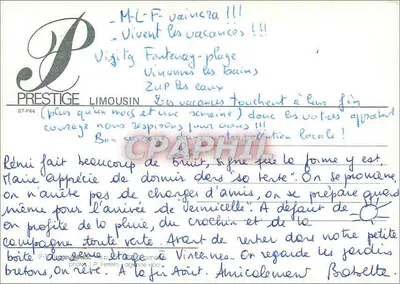 - M-L-F- vaincra !!!
- Vivent les vacances !!!
Visitez Fontenay-plage
Vincennes les bains
ZUP les eaux
P
PRESTIGE LIMOUSIN
57-P44
Les vacances touchent à leur fin
(plus qu'un mois et une semaine) donc les votres approchent
courage nous respirons pour vous !!!
Bon locale !
CPAPHIL
Rémi fait beaucoup de bruit, signe que la forme y est.
Marie apprécie de dormir dans "sa tente". On se promène,
on n'arrête pas de changer d'amis, on se prépare quand
même pour l'arrivée de "Vermicelle". A défaut de
on profite de la pluie, du crachin et de la
campagne toute verte. Avant de rentrer dans notre petite
boîte du 2ème étage à Vincennes. On regarde les jardins
bretons, on rêve. A la fin Août. Amicalement Babette